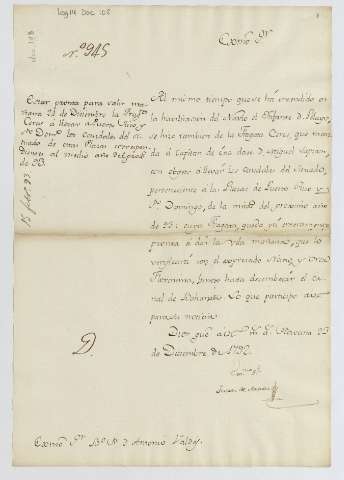 Leg 14 Doc 108
doc. 108
Nº 945
Exmo Sr
Estar pronta para salir ma-
ñana 24 de Diciembre la Fragta
Ceres á llevar a Puerto Rico, y
Sto Domgo los caudales del si-
tuado de estas Plazas correspon-
dientes al medio año del proximo
de 93.
Al mismo tiempo que se ha entendido en
la havilitacion del Navio el Infante D. Pelayo,
se hizo tambien de la Fragata Ceres, que man-
da el Capitan de
con objeto a llevar los Caudales del Situado,
perteneciente á las Plazas de Puerto Rico y
Sto Domingo, de la mitad del proximo año
de 93: cuya Fragata queda ya enteramente
pronta á dar la vela mañana, que lo
verificará con el expresado Navio, y el de Sn
Geronimo, hasta desembocar el Ca-
nal de Bahama. Lo que participo a V.E.
para su noticia.
Dios gue a V.E. ms as Havana 23
de Diciembre de 1792.
Exmo Sr
Juan de Araoz
Exmo Sr Bo Fr D Antonio Valdes